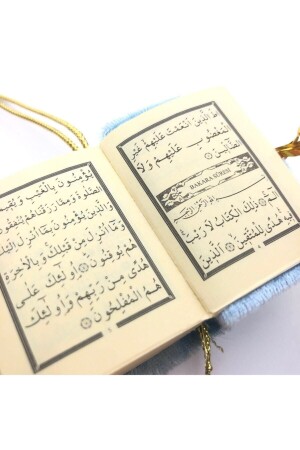 طَ الَّذٖينَ اَنْعَمْتَ عَلَيْهِمْ غَيْرِ
الْمَغْضُوبِ عَلَيْهِمْ وَلَا
الضَّٓالّٖينَ
BAKARA SÛRESİ
بِسْمِ اللّٰهِ الرَّحْمٰنِ الرَّحٖيمِ
الٓمٓ ۝ ذٰلِكَ الْكِتَابُ لَا رَيْبَ
فٖيهِ هُدًى لِلْمُتَّقٖينَ ۝ اَلَّذٖينَ
يُؤْمِنُونَ بِالْغَيْبِ وَيُقٖيمُونَ
الصَّلٰوةَ وَمِمَّا رَزَقْنَاهُمْ يُنْفِقُونَ
وَالَّذٖينَ يُؤْمِنُونَ بِمَٓا اُنْزِلَ اِلَيْكَ
وَمَٓا اُنْزِلَ مِنْ قَبْلِكَ وَبِالْاٰخِرَةِ
هُمْ يُوقِنُونَ ۝ اُولٰٓئِكَ عَلٰى
هُدًى مِنْ رَبِّهِمْ وَاُولٰٓئِكَ
هُمُ الْمُفْلِحُونَ